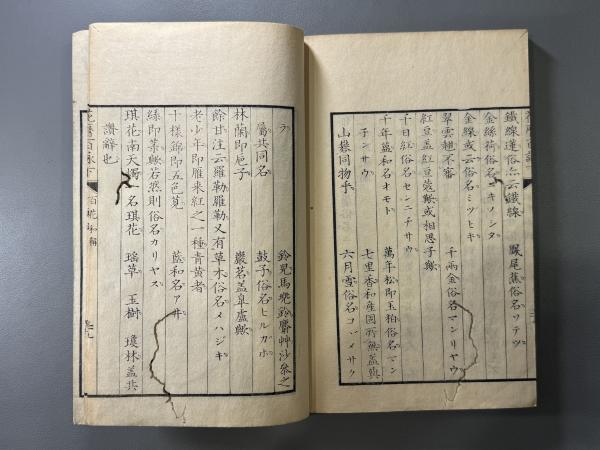 鐵線蓮俗亦云鐵線　鳳尾蕉俗名ソテツ
金絲荷俗名キノシタ
金線或云俗名ミツヒキ
翠雲翹不審　千兩金俗名マンリヤウ
紅豆蓋紅豆蔻歟或相思子歟
千日紅俗名センニチサウ
千年蒀和名オモト　萬年松即玉柏俗名マン
子ンサウ　七里香和産図所無蓋與
山礬同物乎　六月雪俗名コバメサク
ラ　鈴兒馬兜鈴麝艸沙参之
屬共同名　鼓子俗名ヒルガホ
林蘭即巵子　巖茗蓋皐盧歟
餘甘注云羅勒羅勒又有草木俗名メハジキ
老少年即雁来紅之一種青黄者
十様錦即五色莧　藍和名アヰ
絲即菉歟若然則俗名カリヤス
琪花南天燭一名琪花　瑞草　玉樹　瓊林蓋共
讚辭也
花暦百詠下